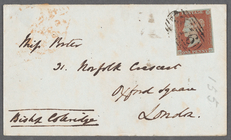 Miss Porter
31. Norfolk Crescent
Oxford Square
London.
Bishop Coleridge
155